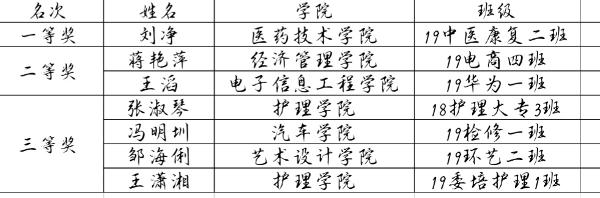 名次 姓名 学院 班级
一等奖 刘净 医药技术学院 19中医康复二班
二等奖 蒋艳萍 经济管理学院 19电商四班
王滔 电子信息工程学院 19华为一班
三等奖 张淑琴 护理学院 18护理大专3班
冯明圳 汽车学院 19检修一班
邹海俐 艺术设计学院 19环艺二班
王潇湘 护理学院 19委培护理1班